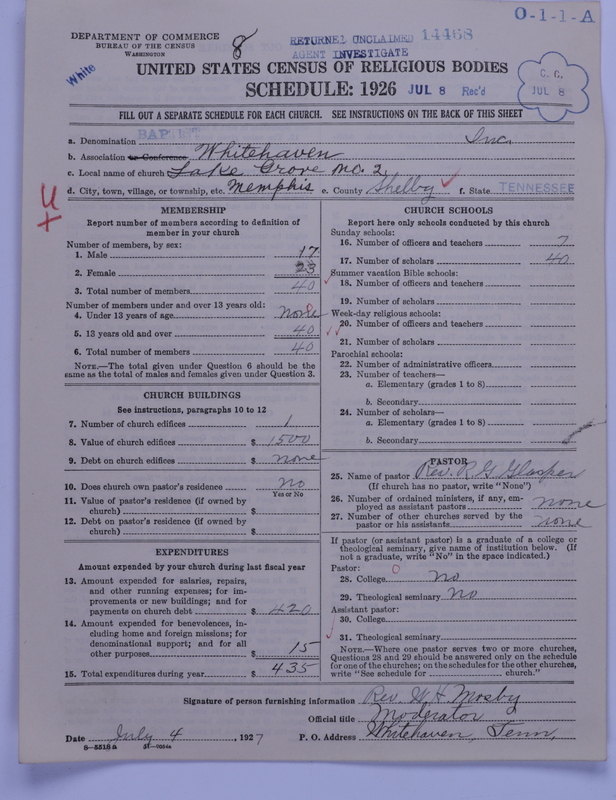 O-1-1-A
DEPARTMENT OF COMMERCE
BUREAU OF THE CENSUS
WASHINGTON
8
RETURNED UNCLAIMED 14468
AGENT INVESTIGATE
White
UNITED STATES CENSUS OF RELIGIOUS BODIES
SCHEDULE: 1926 JUL 8 Rec'd
C. C.
JUL 8
FILL OUT A SEPARATE SCHEDULE FOR EACH CHURCH. SEE INSTRUCTIONS ON THE BACK OF THIS SHEET
a. Denomination BAPTIST Inc.
b. Association or Conference Whitehaven
c. Local name of church Lake Grove No. 2
d. City, town, village, or township, etc. Memphis e. County Shelby f. State TENNESSEE
MEMBERSHIP
Report number of members according to definition of
member in your church
Number of members, by sex:
1. Male 17
2. Female 23
3. Total number of members 40
Number of members under and over 13 years old:
4. Under 13 years of age none
5. 13 years old and over 40
6. Total number of members 40
NOTE.—The total given under Question 6 should be the
same as the total of males and females given under Question 3.
CHURCH BUILDINGS
See instructions, paragraphs 10 to 12
7. Number of church edifices 1
8. Value of church edifices $ 1500
9. Debt on church edifices $ none
10. Does church own pastor's residence no
Yes or No
11. Value of pastor's residence (if owned by
church) $
12. Debt on pastor's residence (if owned by
church) $
EXPENDITURES
Amount expended by your church during last fiscal year
13. Amount expended for salaries, repairs,
and other running expenses; for im-
provements or new buildings; and for
payments on church debt $ 420
14. Amount expended for benevolences, in-
cluding home and foreign missions; for
denominational support; and for all
other purposes $ 15
15. Total expenditures during year $ 435
CHURCH SCHOOLS
Report here only schools conducted by this church
Sunday schools:
16. Number of officers and teachers 7
17. Number of scholars 40
Summer vacation Bible schools:
18. Number of officers and teachers
19. Number of scholars
Week-day religious schools:
20. Number of officers and teachers
21. Number of scholars
Parochial schools:
22. Number of administrative officers
23. Number of teachers—
a. Elementary (grades 1 to 8)
b. Secondary
24. Number of scholars—
a. Elementary (grades 1 to 8)
b. Secondary
PASTOR
25. Name of pastor Rev. R G Glasper
(If church has no pastor, write "None")
26. Number of ordained ministers, if any, em-
ployed as assistant pastors none
27. Number of other churches served by the
pastor or his assistants none
If pastor (or assistant pastor) is a graduate of a college or
theological seminary, give name of institution below. (If
not a graduate, write "No" in the space indicated.)
Pastor:
28. College no
29. Theological seminary no
Assistant pastor:
30. College
31. Theological seminary
NOTE.—Where one pastor serves two or more churches,
Questions 28 and 29 should be answered only on the schedule
for one of the churches; on the schedules for the other churches,
write "See schedule for church."
Signature of person furnishing information Rev. W H Mosby
Official title Moderator
Date July 4, 1927 P. O. Address Whitehaven, Tenn,
8-5318a